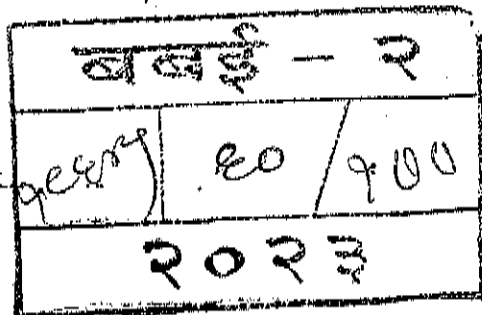 बबई - २
९० / १००
२०२३